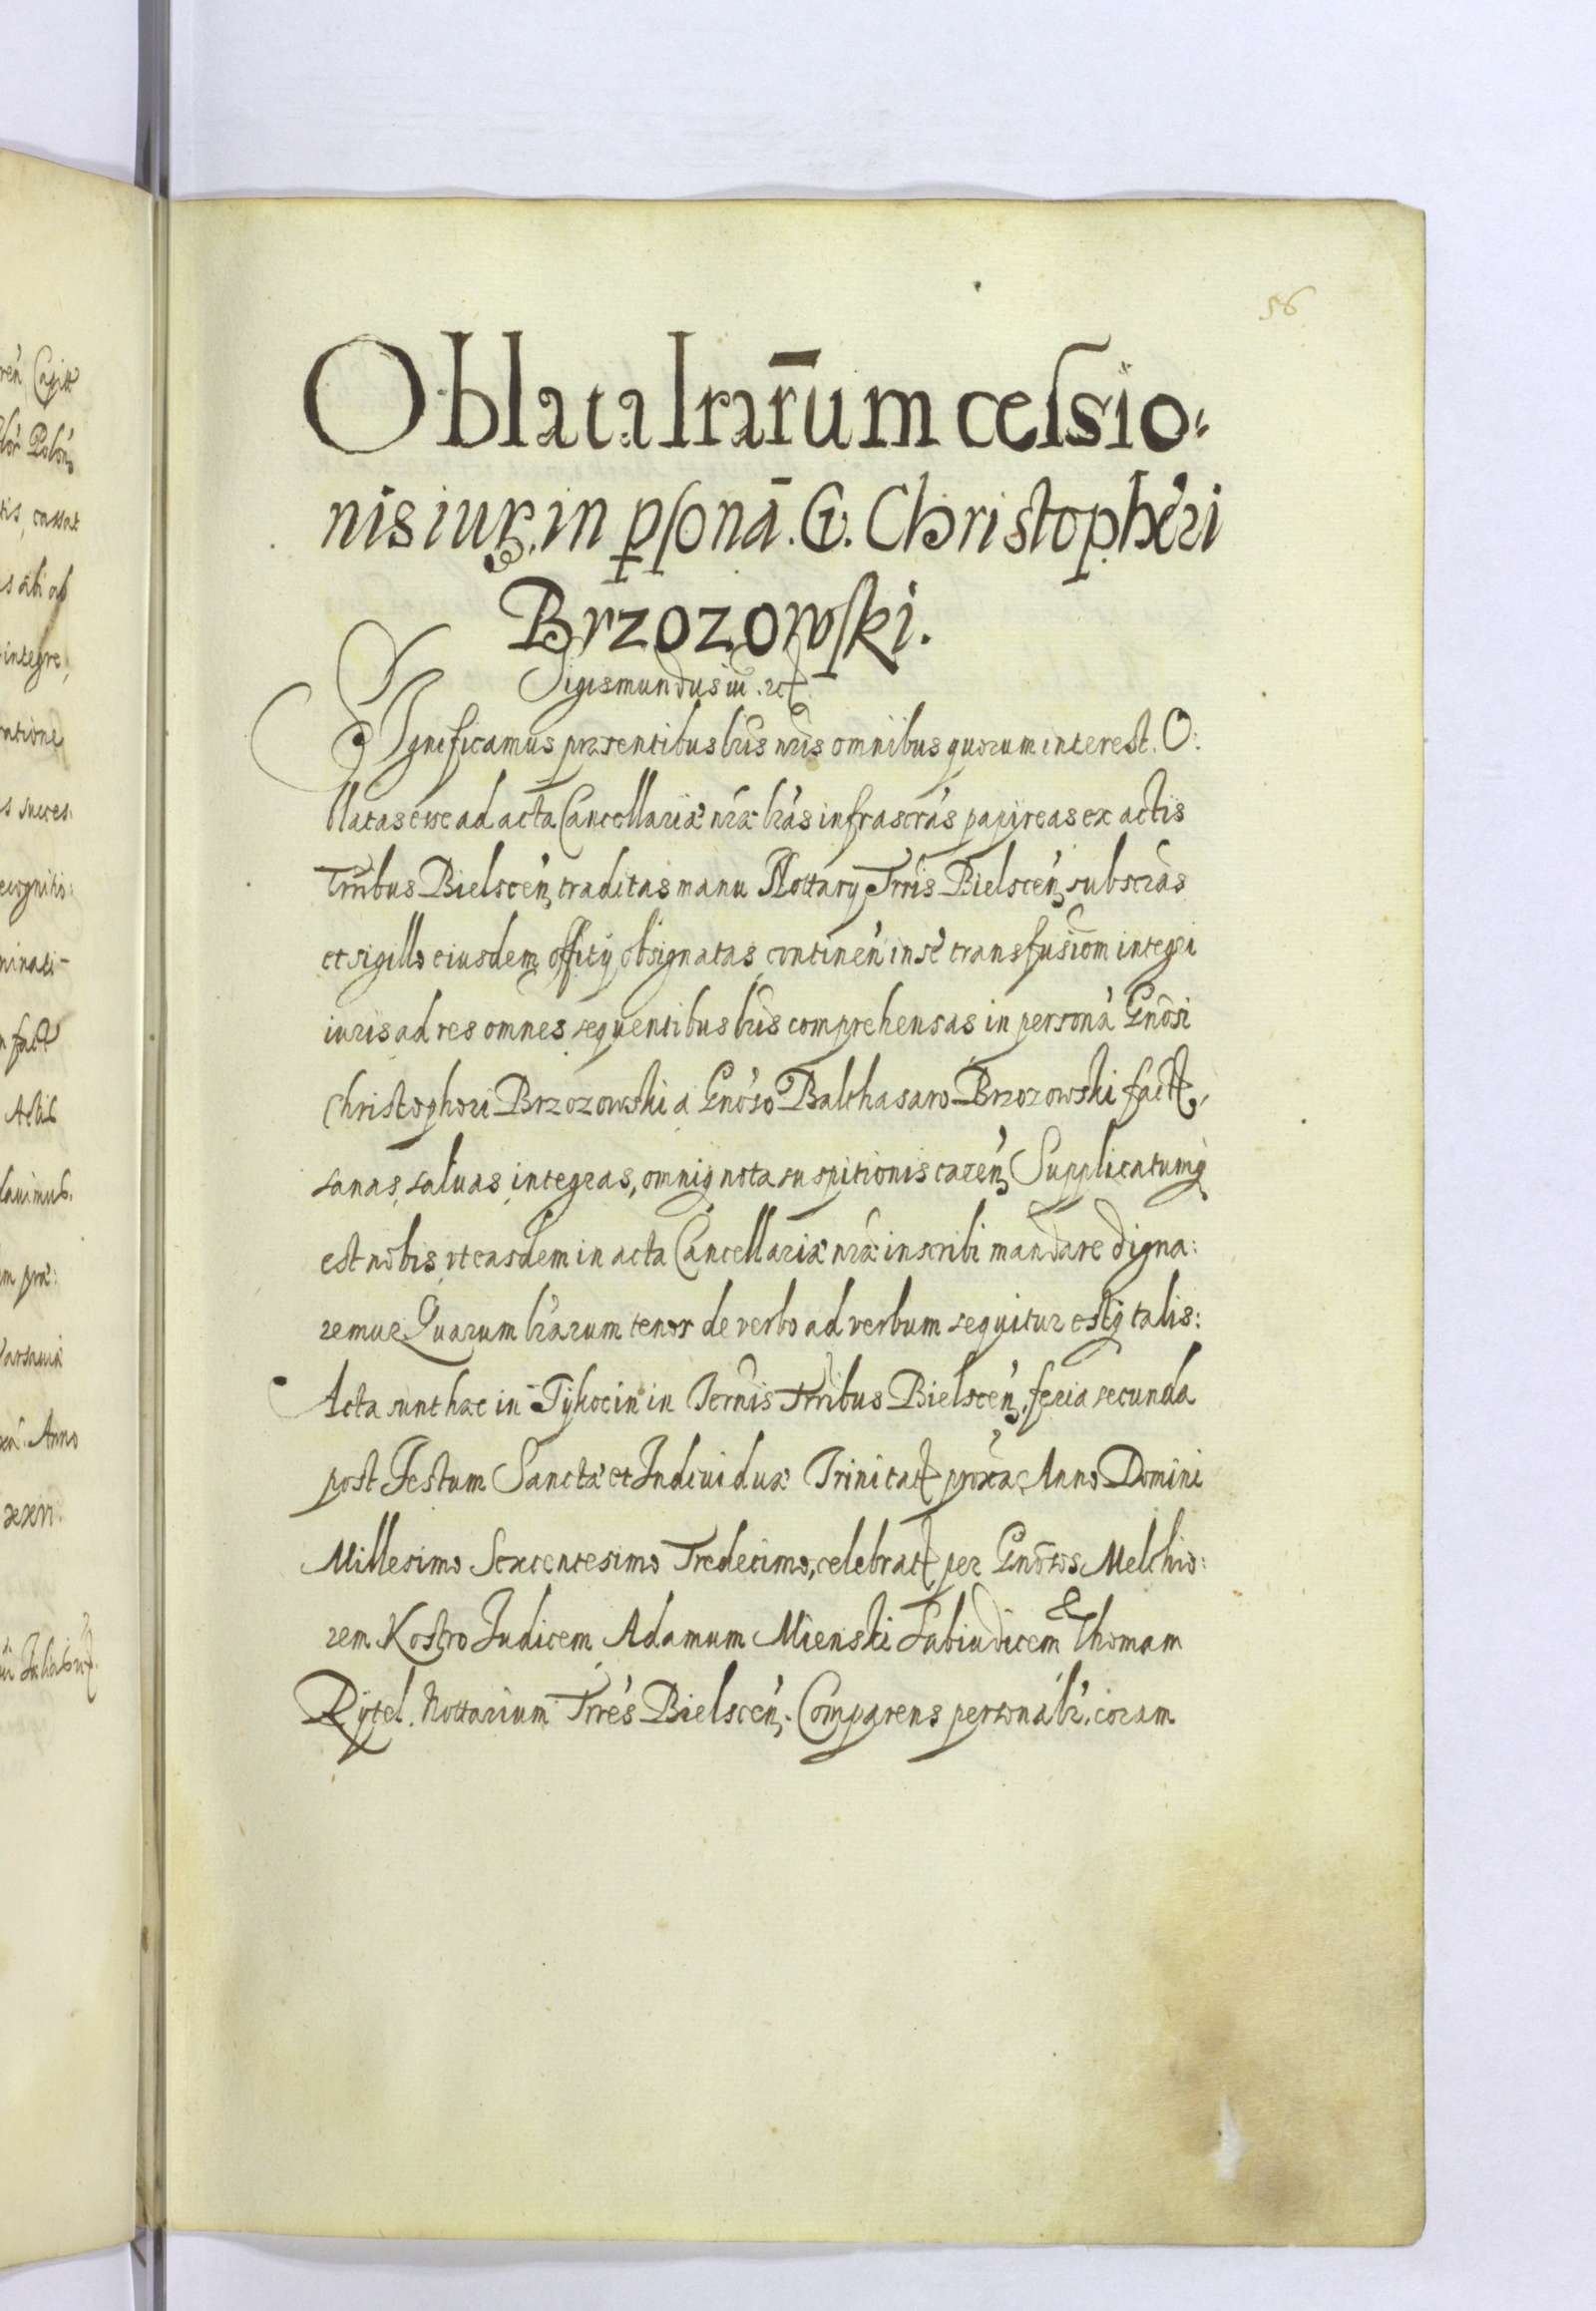 56
Oblata lrarūm cessio-
nis iur. in psonā. G. Christopheri
Brzozowski.
Sigismundus iii. etc
SIgnificamus præsentibus lris nris omnibus quorum interest. O:
blatas esse ad acta Cancellariæ nræ lras infrascras papijreas ex actis
Trribus Bielscen traditas manu Nottarij Trris Bielscen subscras
et sigillo eiusdem offitij obsignatas, continen in se transfusiom integri
iuris ad res omnes sequentibus lris comprehensas in persona Gnosi
Christophori Brzozowski a Gnoso Balthasaro Brzozowski fact,
sanas, saluas, integras, omniq nota suspitionis caren, Supplicatumq
est nobis, vt easdem in acta Cancellariæ nræ inscribi mandare digna:
remur. Quarum lrarum tenor de verbo ad verbum sequitur estq talis:
Acta sunt hæc in Tÿkocin in Termis Trribus Bielscen, feria secunda
post Festum Sanctæ et Indiuiduæ Trinitat proxa, Anno Domini
Millesimo Sexcentesimo Tredecimo, celebrat per Gnosos Melchio:
rem Kostro Iudicem, Adamum Mienski Subiudicem & Thomam
Rÿtel. Nottarium Trres Bielscen. Comparens personalr. coram